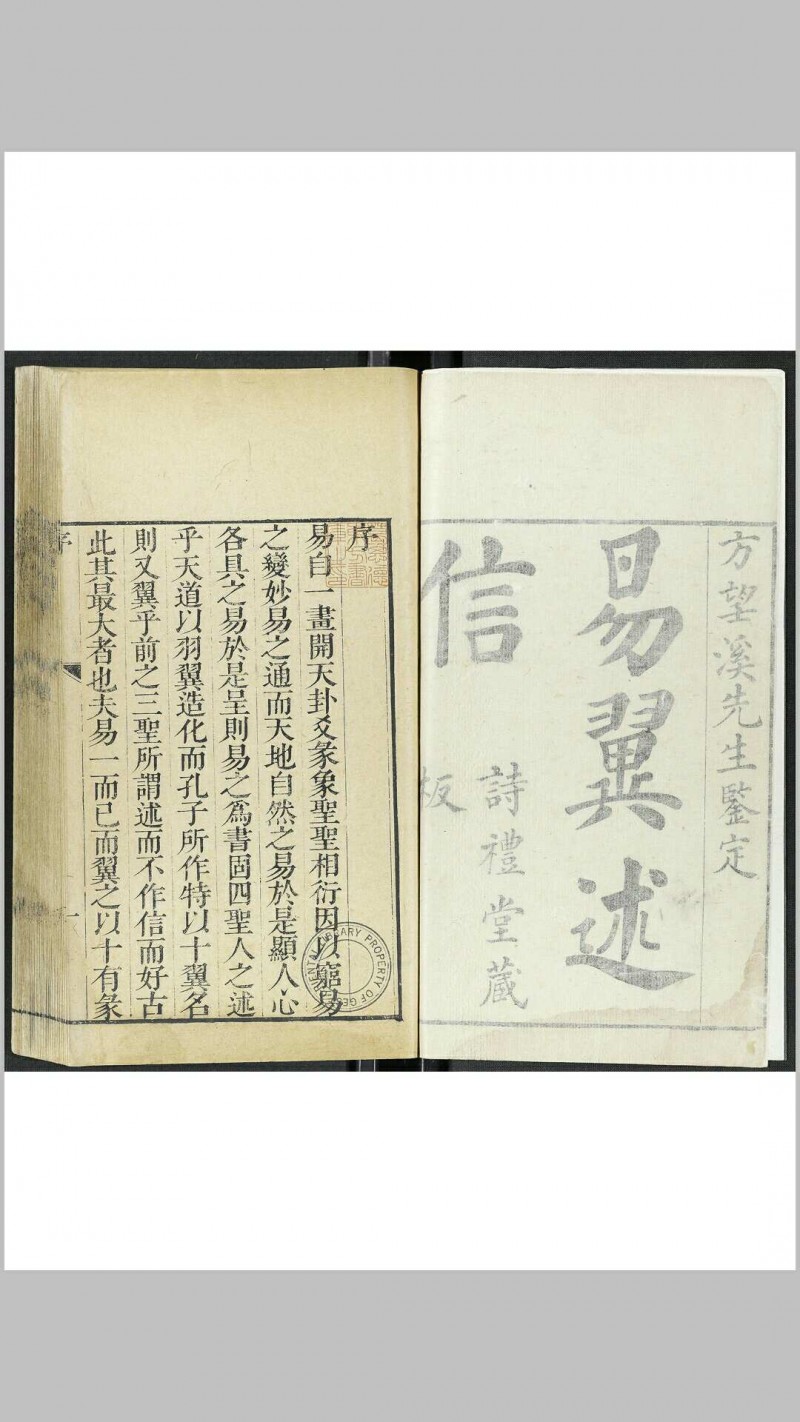 方望溪先生鑒定
易翼述
信
詩禮堂藏
板
序
易自一畫開天卦爻彖象聖聖相衍因以窮易
之變妙易之通而天地自然之易於是顯人心
各具之易於是呈則易之爲書固四聖人之述
乎天道以羽翼造化而孔子所作特以十翼名
則又翼乎前之三聖所謂述而不作信而好古
此其最大者也夫易一而已而翼之以十有彖
序
一
LIBRARY PROPERTY OF